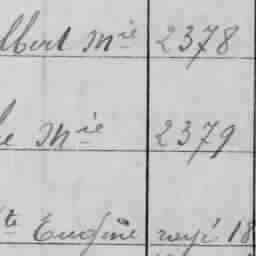 lbert Mie 2378
e Mie 2379
te Eugène rayé 18